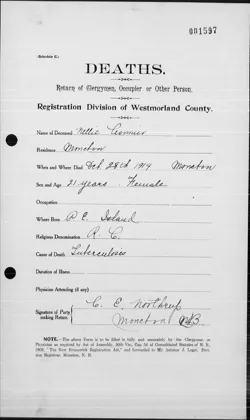 001597
(Schedule C.)
DEATHS.
Return of Clergymen, Occupier or Other Person.
Registration Division of Westmorland County.
Name of Deceased Nettie
Residence Moncton
When and Where Died Oct. 28th 1914 Moncton
Sex and Age 21 years Female
Occupation
Where Born P.E. Island
Religious Denomination R. C.
Cause of Death Tuberculosis
Duration of Illness
Physician Attending (if any)
C. E. Northrup
Signature of Party making Return. Moncton N.B.
NOTE.—The above Form is to be filled in fully and accurately by the Clergyman, or
Physician as required by Act of Assembly, Cap. of Consolidated Statutes of N. B.,
1903, "The New Brunswick Registration Act," and forwarded to
Registrar, Moncton, N. B.